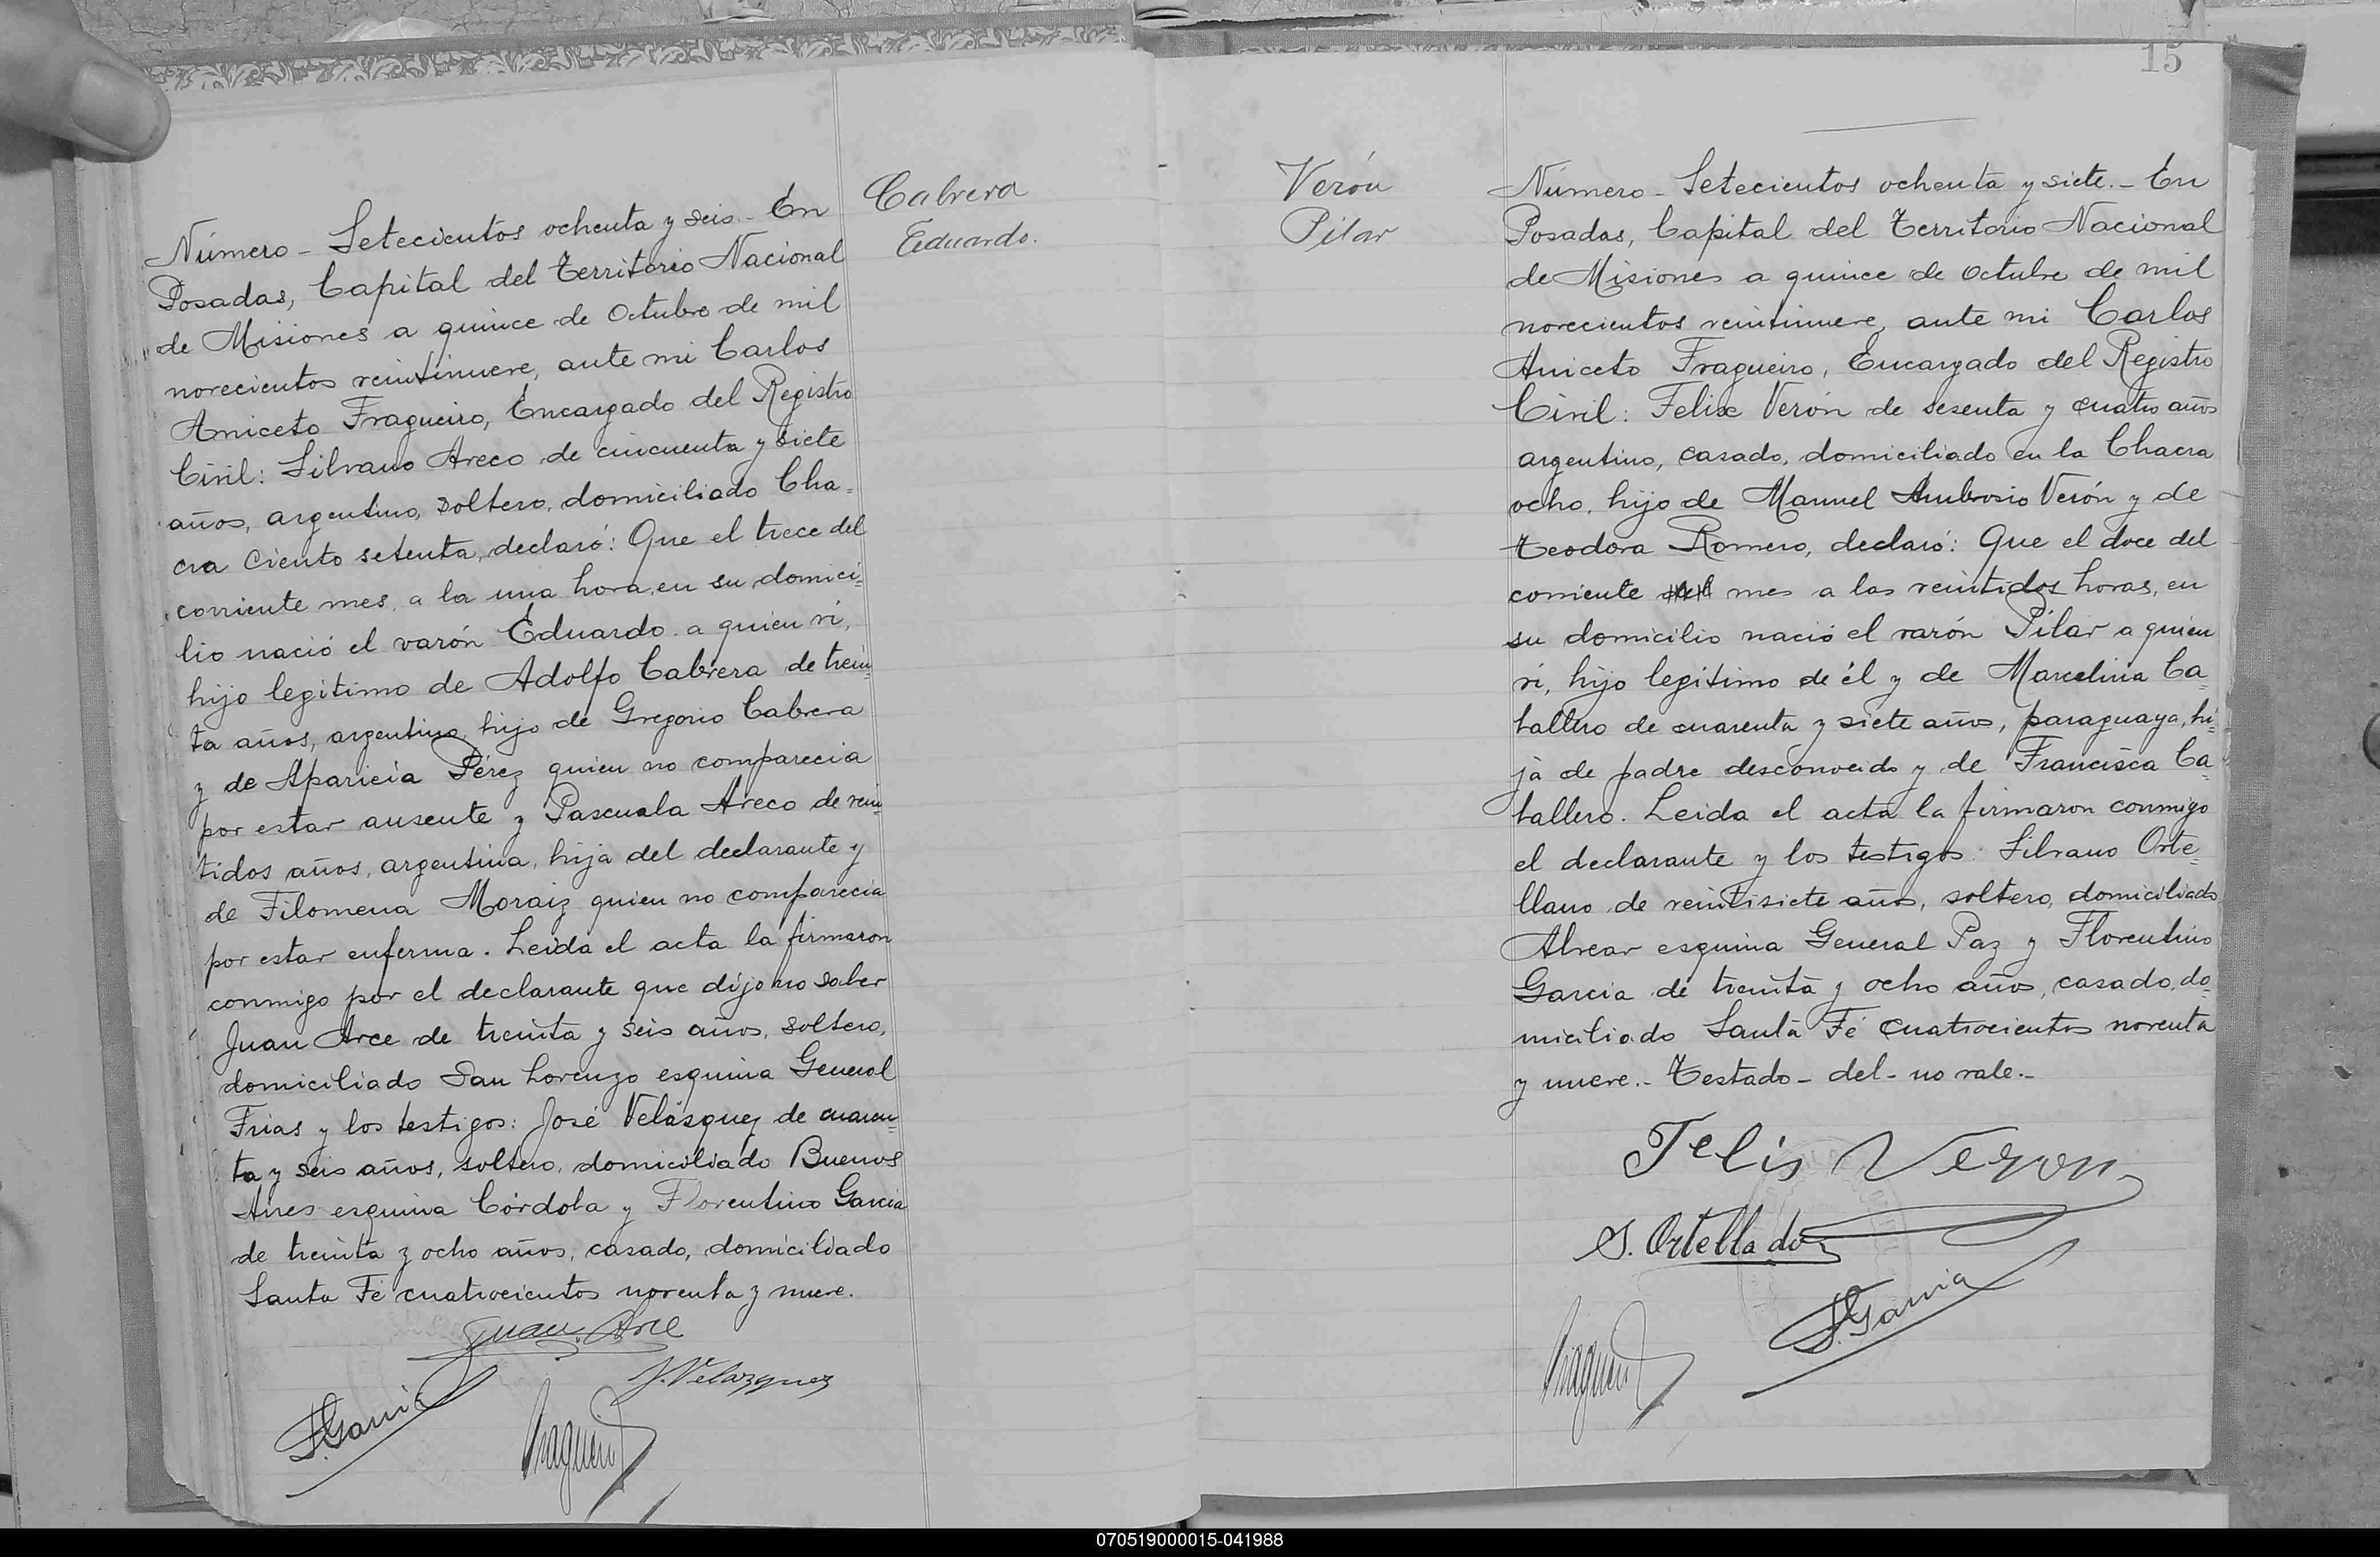 Cabrera
Eduardo.
Número - Setecientos ochenta y seis.- En
Posadas, Capital del Territorio Nacional
de Misiones a quince de Octubre de mil
novecientos veintinueve, ante mi Carlos
Aniceto Fragueiro, Encargado del Registro
Civil: Silvano Areco de cincuenta y siete
años, argentino, soltero, domiciliado Cha=
cra Ciento setenta, declaró: Que el trece del
corriente mes, a la una hora, en su domici=
lio nació el varón Eduardo a quien vi,
hijo legítimo de Adolfo Cabrera de trein=
ta años, argentino, hijo de Gregorio Cabrera
y de Aparicia Pérez quien no comparecia
por estar ausente y Pascuala Areco de vein=
tidos años, argentina, hija del declarante y
de Filomena Moraiz quien no comparecia
por estar enferma. Leida el acta la firmaron
conmigo por el declarante que dijo no saber
Juan Arce de treinta y seis años, soltero,
domiciliado San Lorenzo esquina General
Frias y los testigos: José Velásquez de cuaren=
ta y seis años, soltero, domiciliado Buenos
Aires esquina Córdoba y Florentino Garcia
de treinta y ocho años, casado, domiciliado
Santa Fé cuatrocientos noventa y nueve.
Juan Arce
J. Velazquez
F. Garcia
Fragueiro
15
Verón
Pilar
Número - Setecientos ochenta y siete.- En
Posadas, Capital del Territorio Nacional
de Misiones a quince de Octubre de mil
novecientos veintinueve, ante mi Carlos
Aniceto Fragueiro, Encargado del Registro
Civil: Felix Verón de sesenta y cuatro años
argentino, casado, domiciliado en la Chacra
ocho, hijo de Manuel Ambrosio Verón y de
Teodora Romero, declaró: Que el doce del
corriente del mes a las veintidos horas, en
su domicilio nació el varón Pilar a quien
vi, hijo legitimo de él y de Marcelina Ca=
ballero de cuarenta y siete años, paraguaya, hi=
ja de padre desconocido y de Francisca Ca=
ballero. Leida el acta la firmaron conmigo
el declarante y los testigos: Silvano Orte=
llano de veintisiete años, soltero, domiciliado
Alvear esquina General Paz y Florentino
Garcia de treinta y ocho años, casado, do=
miciliado Santa Fé cuatrocientos noventa
y nueve.- Testado - del - no vale.-
Felis Veron
S. Ortellado
F. Garcia
Fragueiro
070519000015-041988